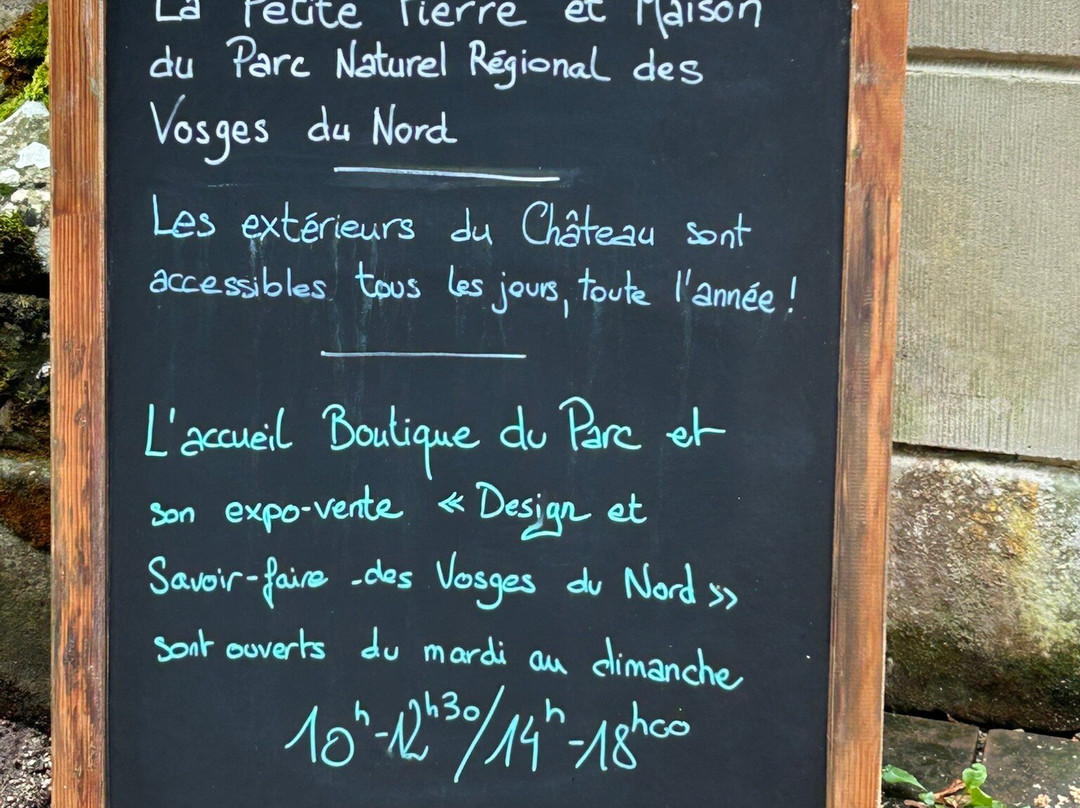 La Petite Pierre et Maison
du Parc Naturel Régional des
Vosges du Nord
Les extérieurs du Château sont
accessibles tous les jours, toute l'année !
L'accueil Boutique du Parc et
son expo-vente « Design et
Savoir-faire des Vosges du Nord »
sont ouverts du mardi au dimanche
10h-12h30/14h-18h00